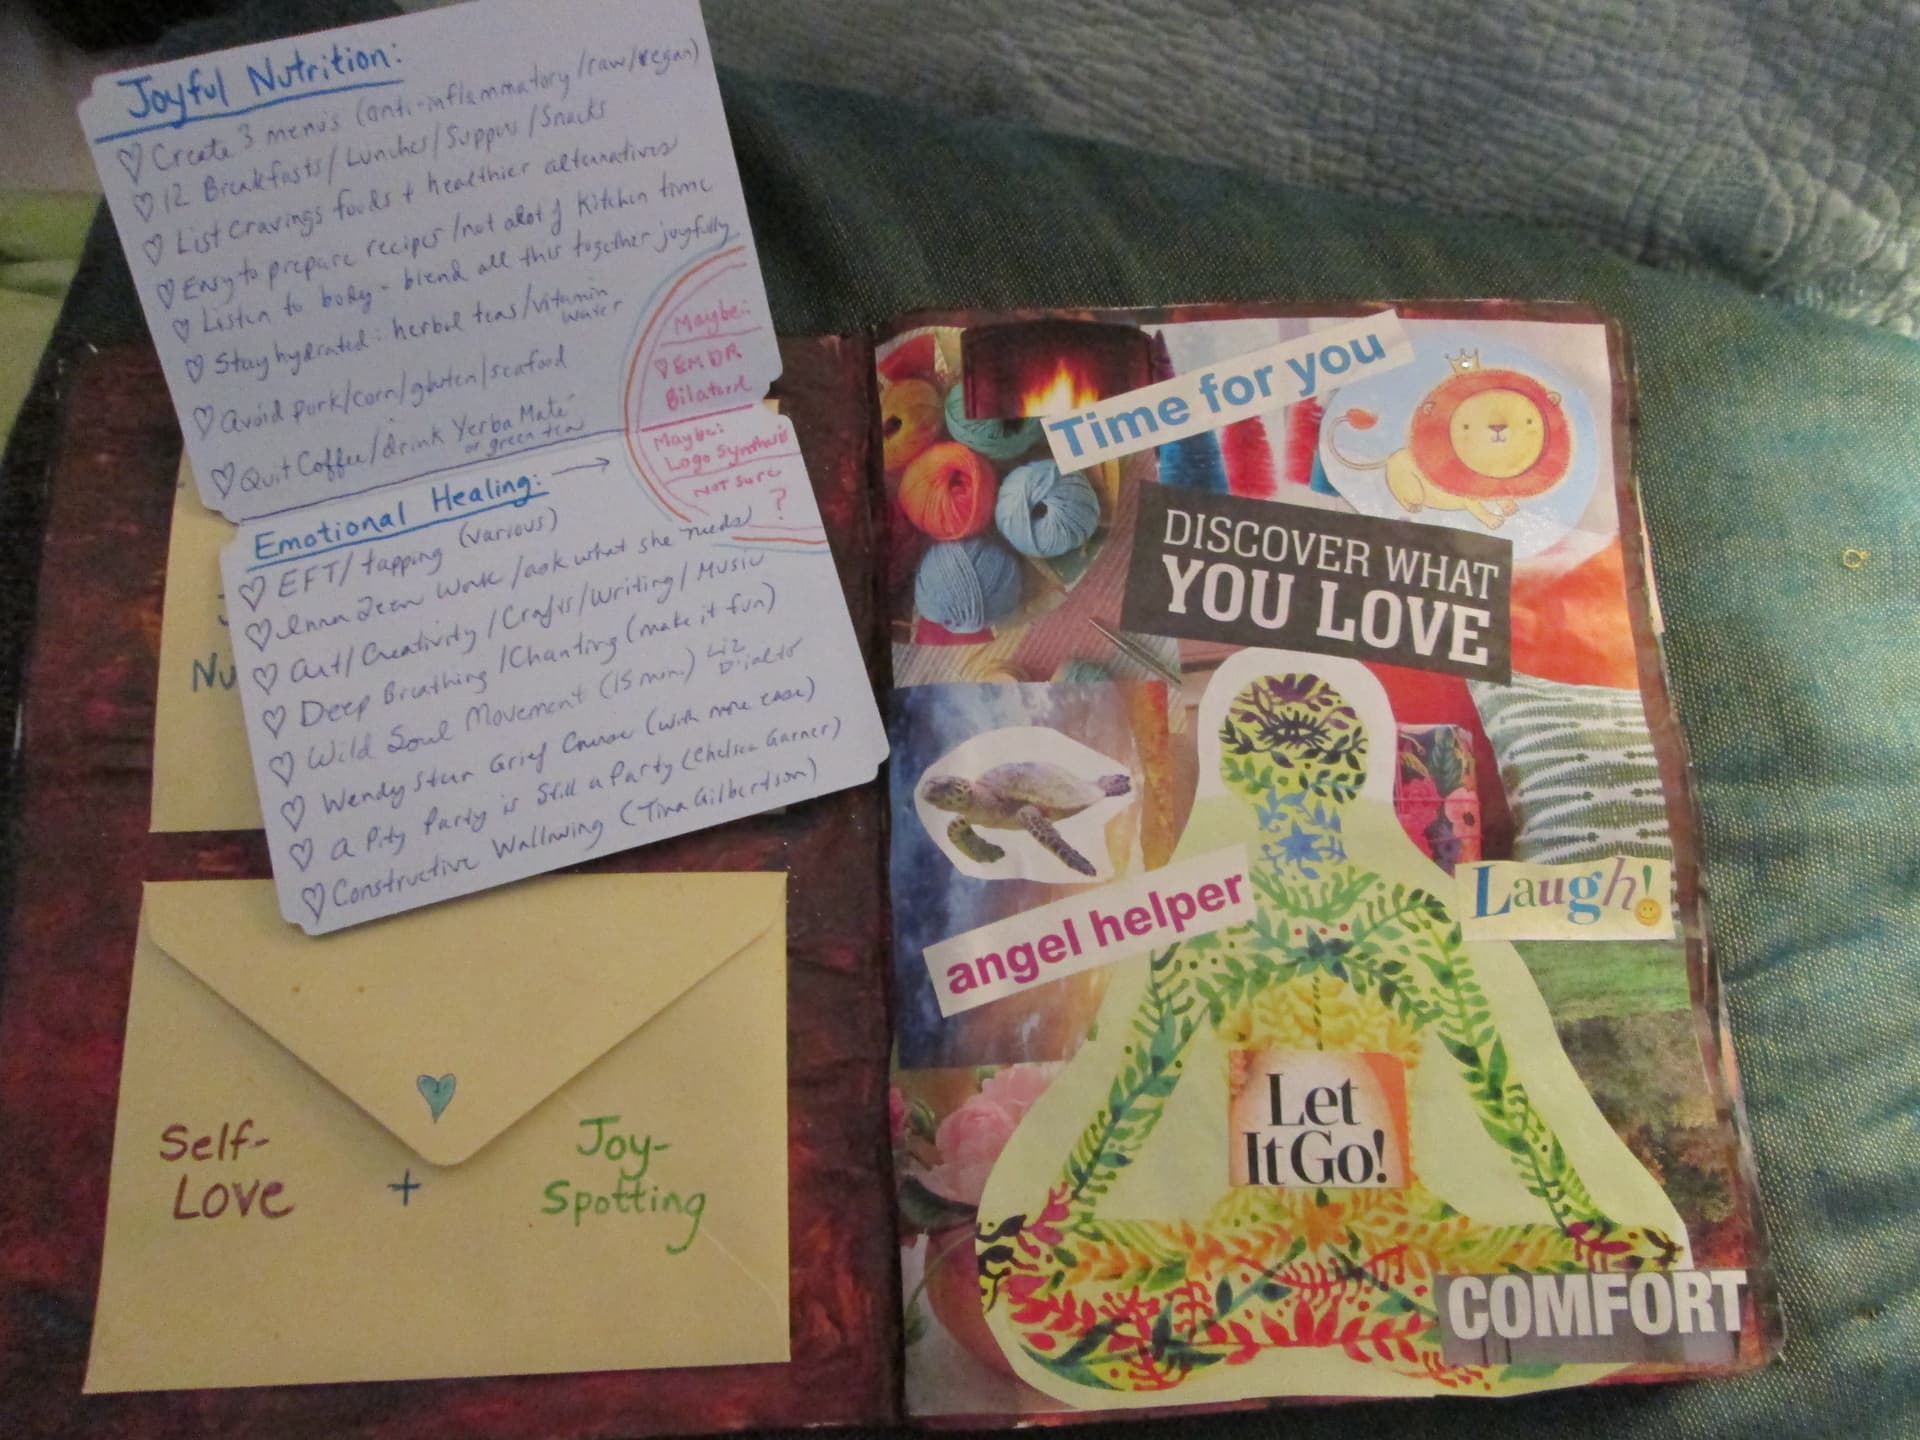 Joyful Nutrition:
♡ Create 3 menu's (anti-inflammatory/raw/vegan)
♡ 12 Breakfasts/Lunches/Suppers/Snacks
♡ List Cravings foods + healthier alternatives
♡ Easy to prepare recipes/not alot of kitchen time
♡ Listen to body - blend all this together joyfully
♡ Stay hydrated: herbal teas/vitamin
water
♡ Avoid pork/corn/gluten/seafood
♡ Quit Coffee/drink Yerba Mate
or green tea
Maybe:
♡ EMDR
Bilateral
Maybe:
Logosynthesis
NOT SURE
?
Emotional Healing: →
♡ EFT/tapping (various)
♡ Inner Teen Work/ask what she needs
♡ Art/Creativity/Crafts/Writing/Music
♡ Deep Breathing/Chanting (make it fun)
♡ Wild Soul Movement (15 min.) Liz
Dialto
♡ Wendy Stern Grief Course (with more ease)
♡ A Pity Party is Still a Party (Chelsea Garner)
♡ Constructive Wallowing (Tina Gilbertson)
Nu
Self-
Love
+
Joy-
Spotting
Time for you
DISCOVER WHAT
YOU LOVE
angel helper
Laugh!
Let
It Go!
COMFORT